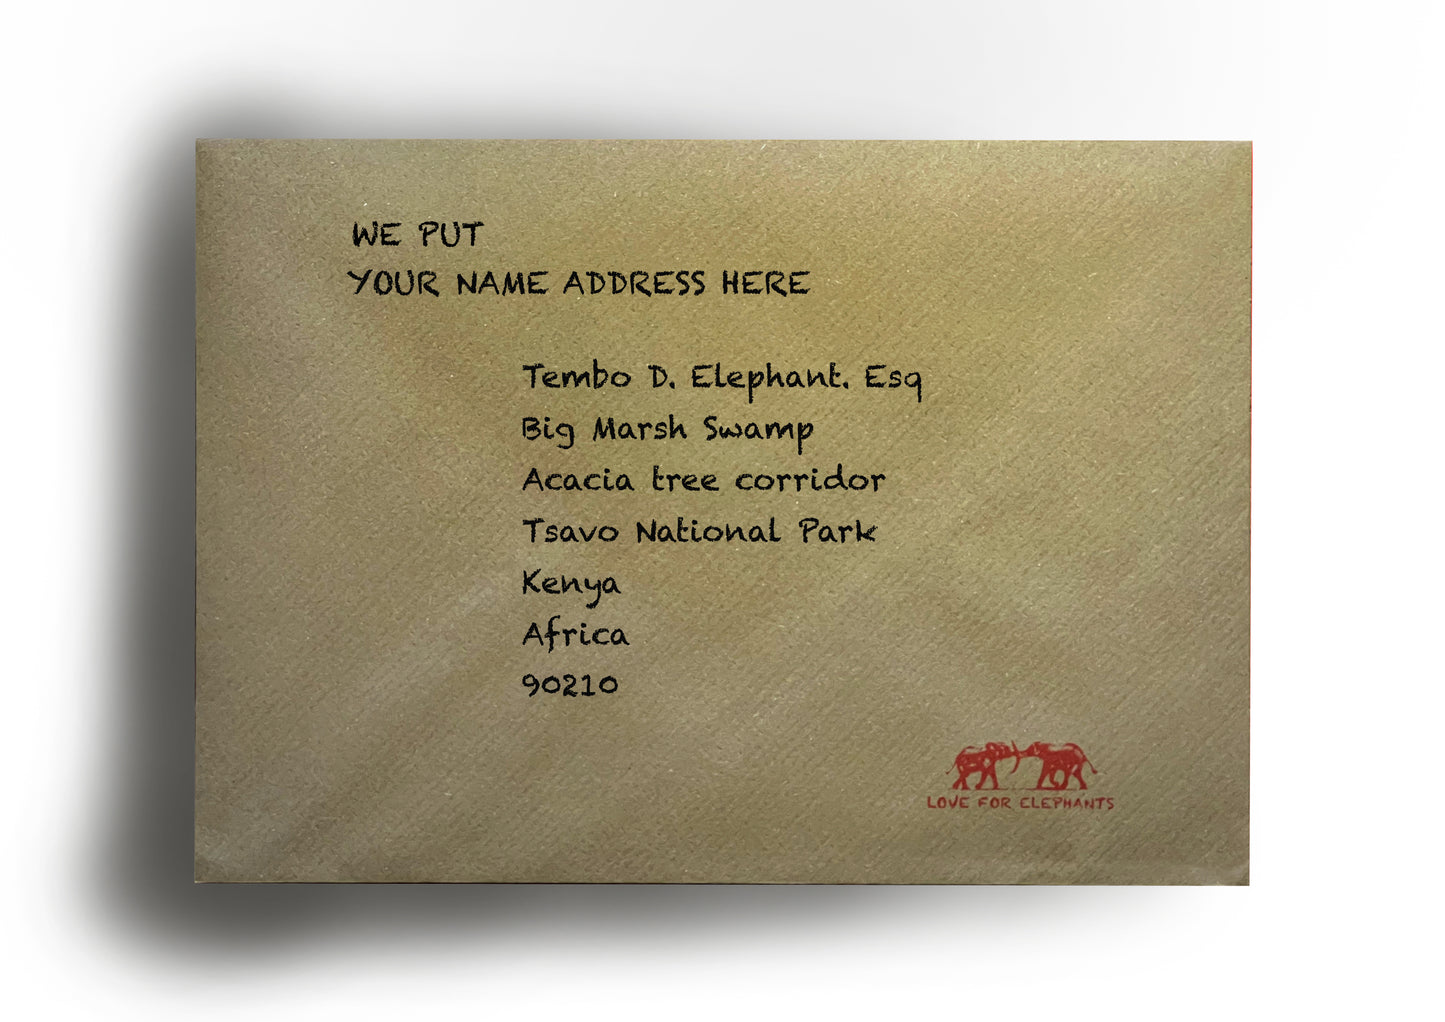 WE PUT
YOUR NAME ADDRESS HERE
Tembo D. Elephant. Esq
Big Marsh Swamp
Acacia tree corridor
Tsavo National Park
Kenya
Africa
90210
LOVE FOR ELEPHANTS